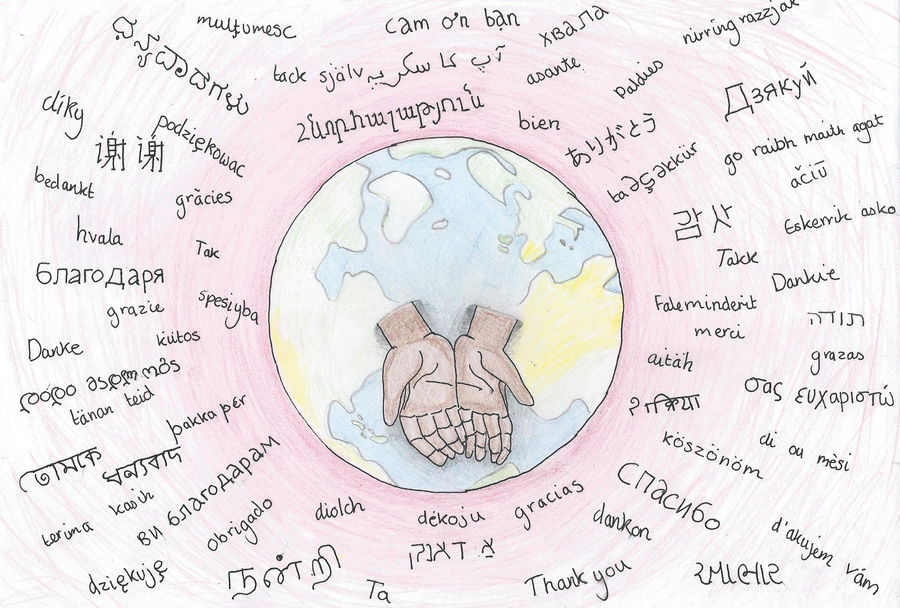 mulţumesc
cảm ơn bạn
хвала
nirringrazzjak
tack själv
آپ کا سکریہ
asante
paldies
Дзякуй
díky
谢谢
podziękować
շնորհակալություն
bien
ありがとう
təşəkkür
go raibh maith agat
ačiū
bedankt
gràcies
hvala
Tak
감사
Eskerrik asko
благодаря
grazie
spesiyba
Takk
Dankie
Faleminderit
תודה
Danke
kiitos
merci
aitäh
grazas
tänan teid
þakka þér
σας ευχαριστώ
köszönöm
di ou mèsi
তোমাকে ধন্যবাদ
terima kasih
ви благодарам
obrigado
diolch
dėkoju
gracias
dankon
Спасибо
d'akujem vám
dziękuję
நன்றி
Ta
א דאנק
Thank you
આભાર